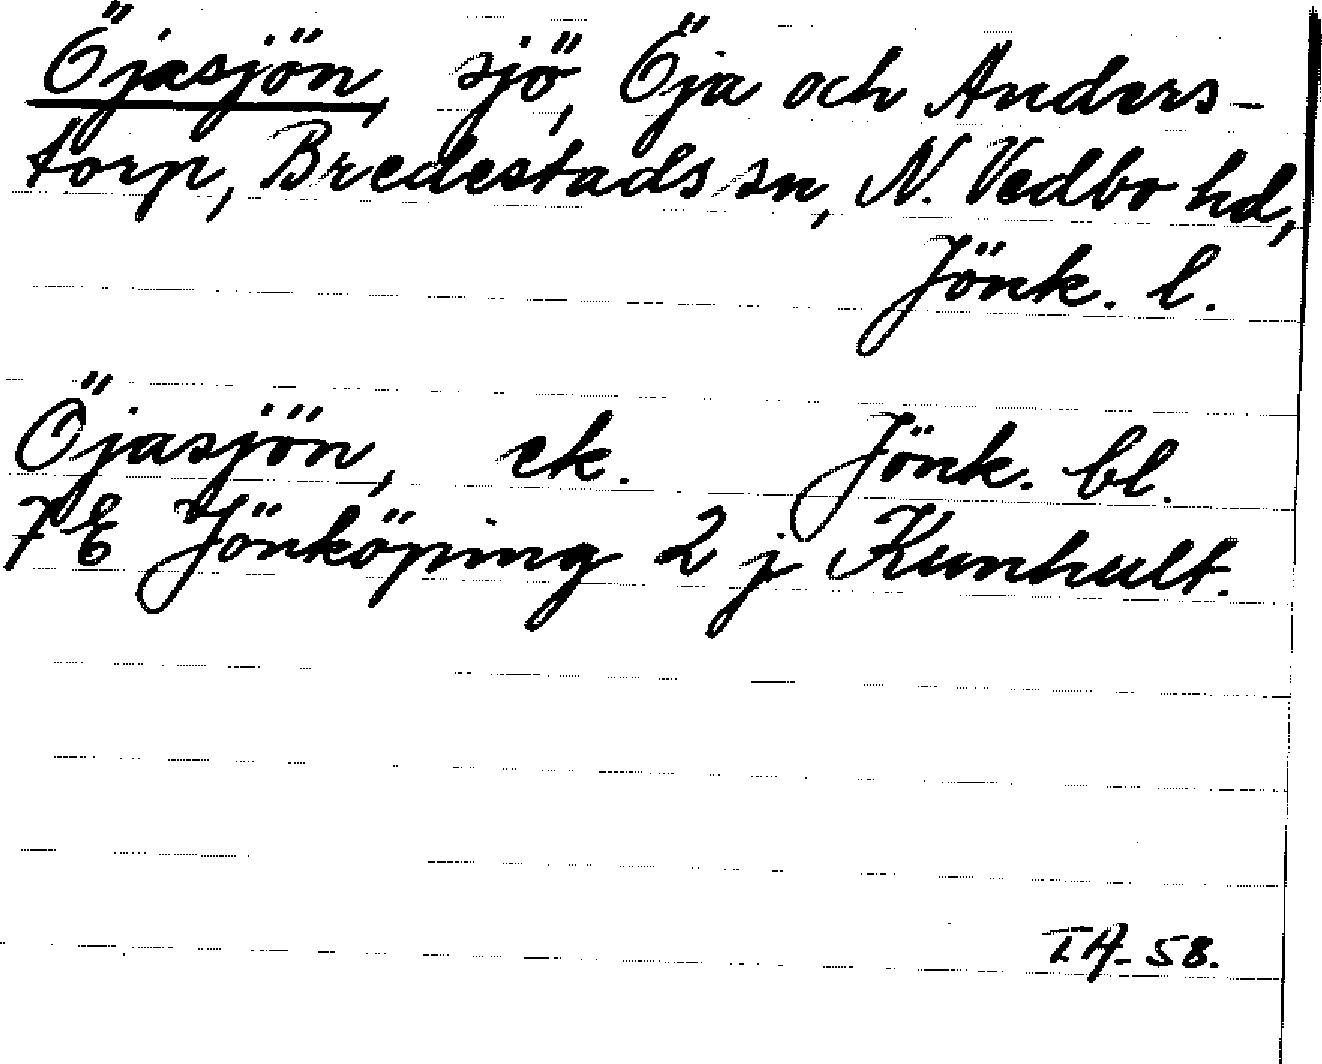 Öjasjön, sjö, Öja och Anders-
torp, Bredestads sn, N. Vedbo hd,
Jönk. l.
Öjasjön, ek. Jönk. bl.
7 E Jönköping 2 j Kunhult.
IA-58.